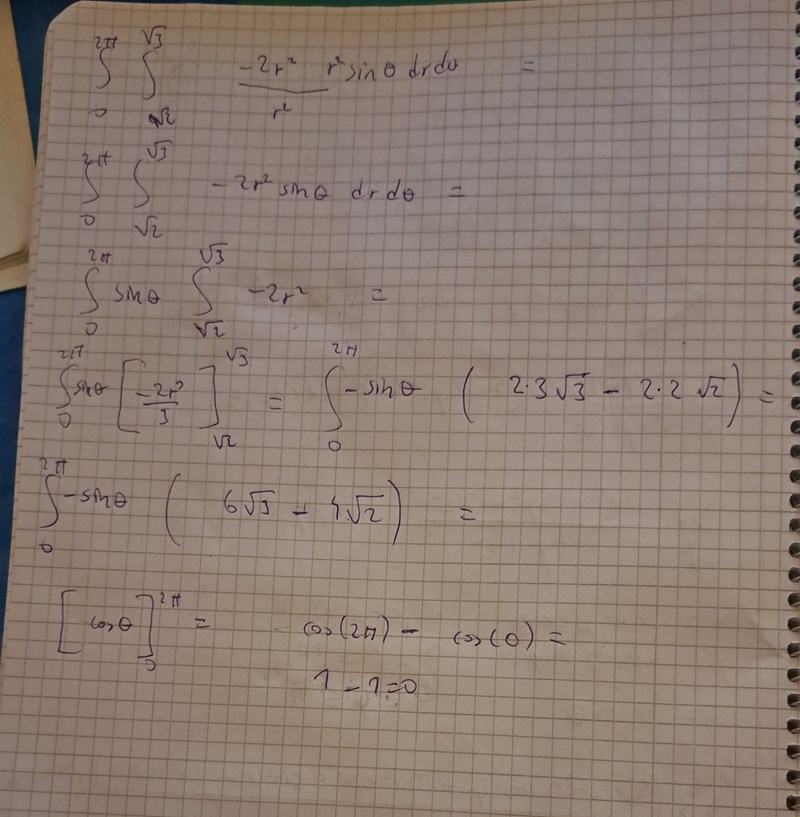 ∫₀^{2π} ∫_{√2}^{√3} \frac{-2r²}{r²} r² sin θ dr dθ =
∫₀^{2π} ∫_{√2}^{√3} -2r² sin θ dr dθ =
∫₀^{2π} sin θ ∫_{√2}^{√3} -2r² =
∫₀^{2π} sin θ [\frac{-2r³}{3}]_{√2}^{√3} = ∫₀^{2π} -sin θ ( 2·3√3 - 2·2√2 ) =
∫₀^{2π} -sin θ ( 6√3 - 4√2 ) =
[cos θ]₀^{2π} = cos(2π) - cos(0) =
1-1=0